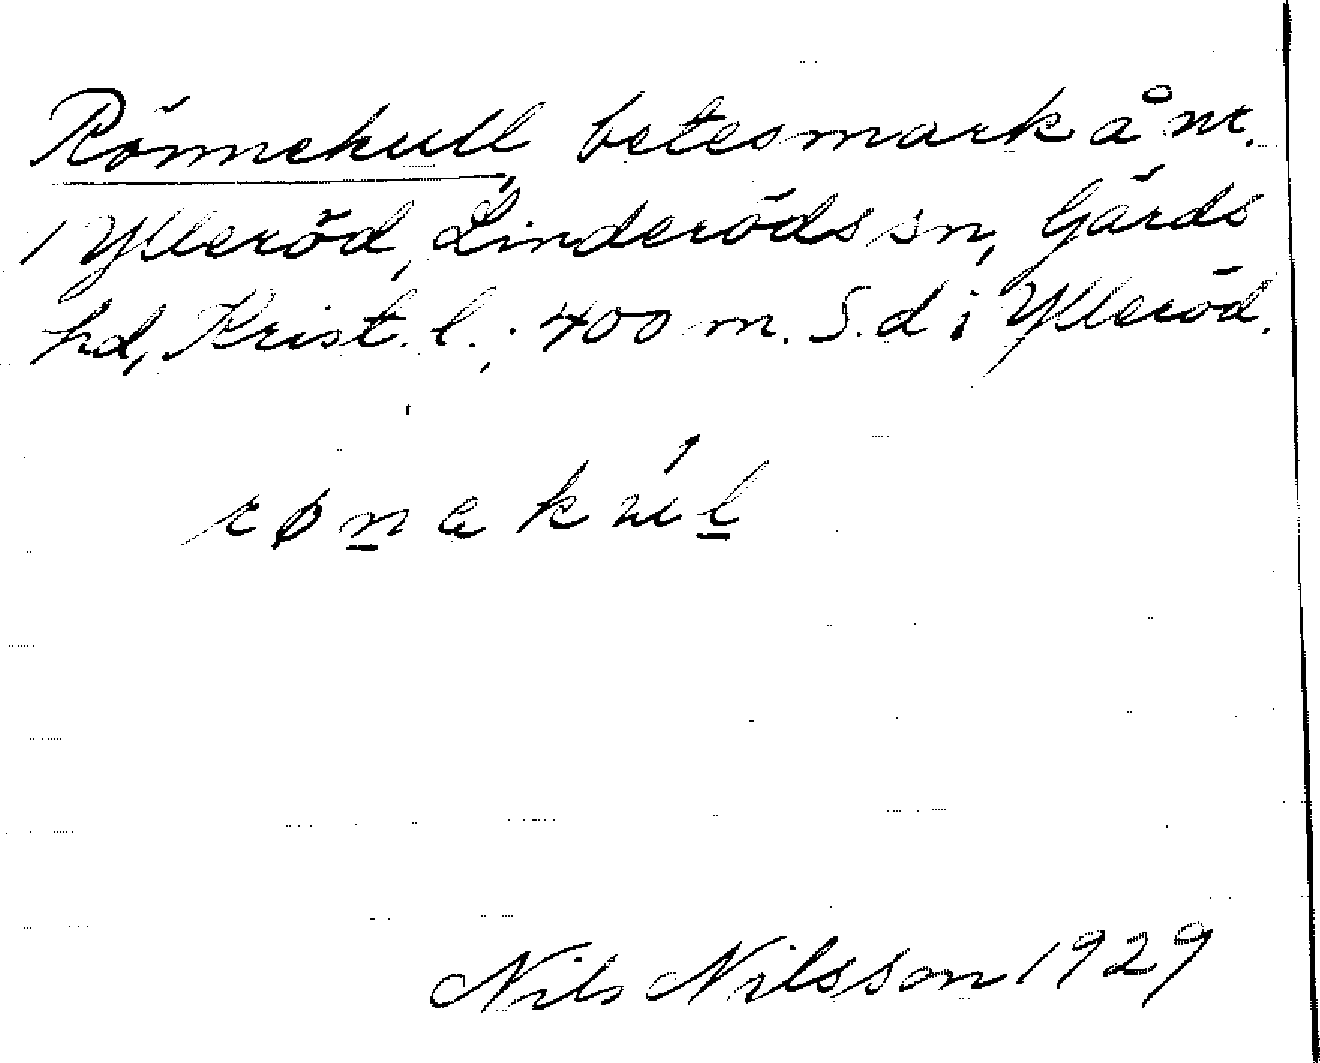 Rönnekull, betesmark å nr.
1 Ylleröd, Linderöds sn, Gärds
hd, Krist. l.; 400 m. S. d i Ylleröd.
rønakúl
Nils Nilsson 1929